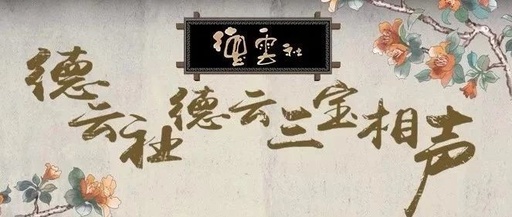 德雲社
德云社德云三宝相声